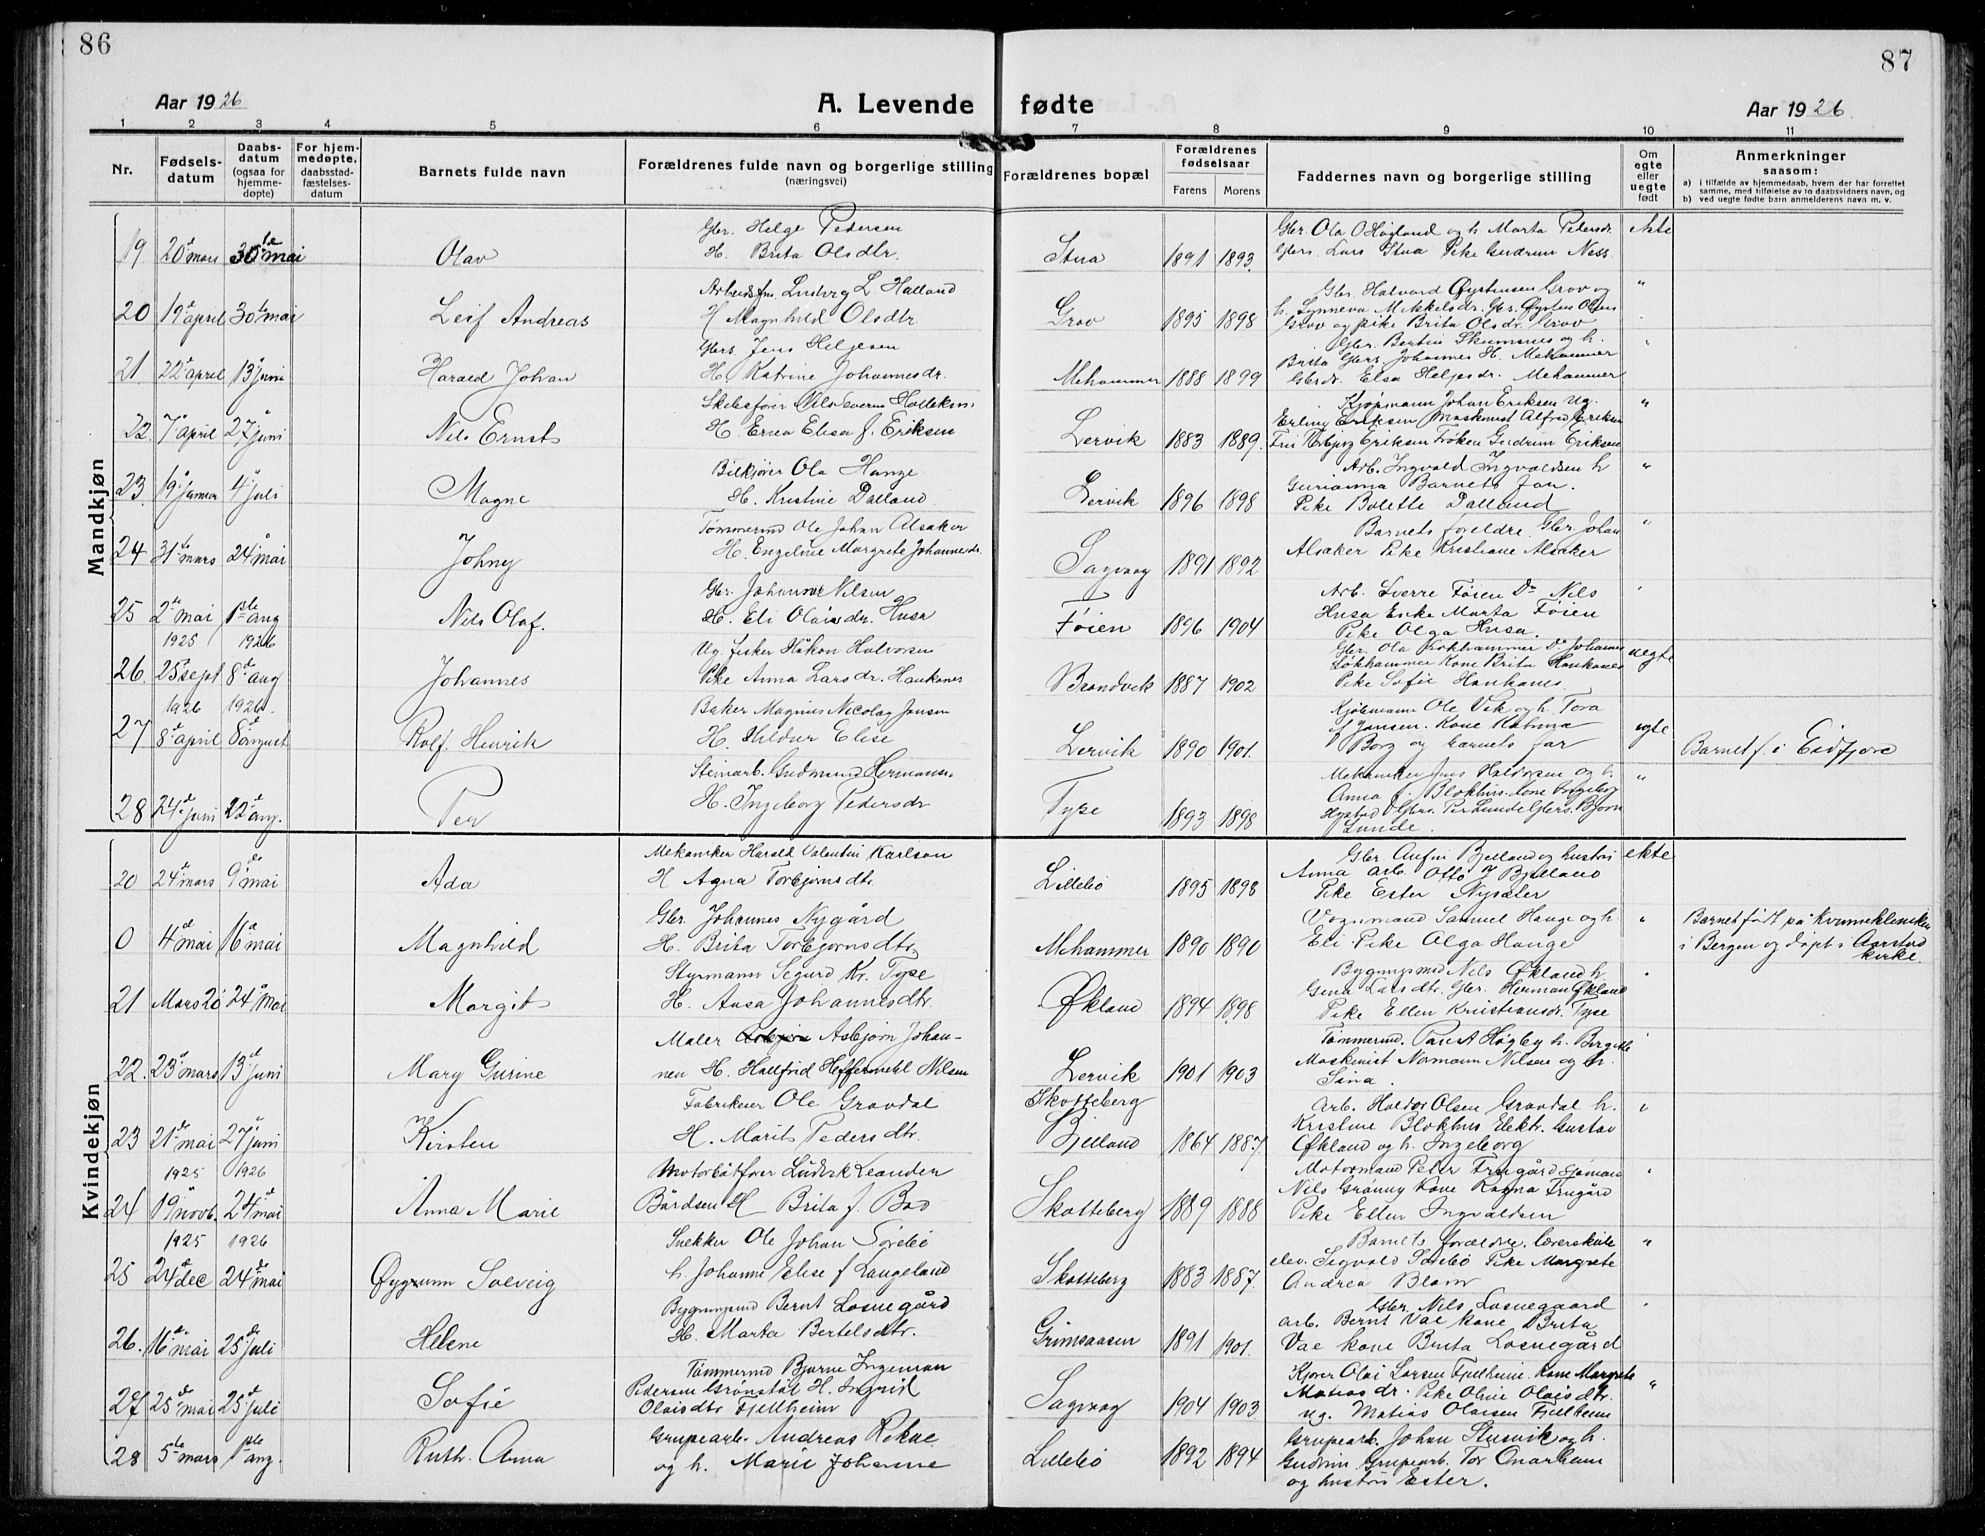 86
87
Aar 1926
A. Levende fødte
Aar 1926
1 2 3 4 5 6 7 8 9 10 11
Nr.
Fødsels-datum
Daabs-datum (ogsaa for hjemme-døpte)
For hjem-medøpte, daabsstad-fæstelses-datum
Barnets fulde navn
Forældrenes fulde navn og borgerlige stilling (næringsvei)
Forældrenes bopæl
Forældrenes fødselsaar
Farens Morens
Faddernes navn og borgerlige stilling
Om egte eller uegte født
Anmerkninger saasom:
a) i tilfælde av hjemmedaab, hvem der har forrettet samme, med tilføielse av to daabsvidners navn, og
b) ved uegte fødte barn anmelderens navn m. v.
Mandkjøn
Gbr. Helge Pedersen
Gbr. Ola O Høgland og h. Marta Pedersdr. ekte
19. 20de mars 30te mai Olav H. Brita Olsdtr. Stua 1891 1893. Gbrs. Lars Stua Pike Gudrun Ness
Arbeidsfm. Ludvig L. Halland
Gbr. Halvard Øystensen Grov og "
20 19de april 30te mai Leif Andreas H Magnhild Olsdtr. Grov 1895 1898 h. Synneva Mikkelsdr. Gbr. Øysten Olsen
Grov og pike Brita Olsdr. Grov
Gbrs Jens Helgesen
Gbr. Bertin Skumsnes og h. "
21 22de april 13de juni Harald Johan H. Katrine Johannesdr. Mehammer 1888 1899 Brita Gbrs. Johannes H. Mehammer
Gbrdr. Elsa Helgesdr. Mehammer
Skibsfører Nils Severin
Kjøpmann Johan Eriksen ug. "
22. 7de april 27de juni Nils Ernst H. Erna Elisa f. Eriksen Lervik 1883 1889. Erling Eriksen Maskinist Alfred Eriksen
Eriksen Frøken Gudrun Eriksen
Bilkjører Ola Hauge
Arb. Ingvald Ingvaldsen h "
23. 19de januar 4de juli Magne H. Kristine Dalland Lervik 1896 1898 Gurianna Barnets far.
Pike Bolette Dalland
Tømmermd Ole Johan Alsaker
Barnets foreldre Gbr. Johan "
24 31te mars 24de mai Johny H. Engeline Margrete Johannesdr. Sagvag 1891 1892 Alsaker Pike Kristiane Alsaker
Gbr. Johannes Nilsen
Arb. Sverre Føien Do Nils "
25 2de mai 1ste aug Nils Olaf. H. Eli Olaisdr. Husa Føien 1896 1904 Husa Enke Marta Føien
Pike Olga Husa.
1925 1926
Ug. fisker Håkon Halvorsen
Gbr. Ola Løkhammer Do Johannes uegte
26. 25de sept 8de aug Johannes Pike Anna Larsdr. Haukanes Brandvik 1887 1902 Løkhammer Kone Brita Haukanes
Pike Sofie Haukanes
1926 1926.
Baker Magnus Nicolay Jansen
Kjøbmann Ole Vik og h. Tora
27 8de april 8de august Rolf Henrik H. Hildur Elise Lervik 1890 1901. f Jansen. Kone Katrina egte Barnet f. i Eidfjord
Borg og barnets far
Steinarb. Gudmund Hermansen
Mekaniker Jens Haldorsen og h. "
28 24de juni 22de aug. Per H. Ingeborg Pedersdr Tyse 1893 1898 Anna f. Blokhus. Kone Ingeborg
Hystad Gbr. Per Lunde Gbrs. Bjørn
Lunde.
Kvindekjøn
Mekaniker Harald Valentin Karlson
Gbr. Anfin Bjelland og hustru ekte
20 24de mars 9de mai Ada H Agna Torbjørnsdtr. Litlebø 1895 1898 Anna arb. Otto J Bjelland
Pike Ester Nysæter
Gbr. Johannes Nygård
Vognmand Samuel Hauge og h. "
0 4de mai 16de mai Magnhild H. Brita Torbjørnsdtr. Mehammer 1890 1890 Eli Pike Olga Hauge
Barnet født på Kvinneklinikken i Bergen og døpt i Aarstad kirke.
Styrmann Segurd Kr. Tyse
Bygningsmd Nils Økland h "
21 Mars 20 24de mai Margit H. Ansa Johannesdtr. Økland 1894 1898 Gina Larsdtr. Gbr. Herman Økland
Pike Ellen Kristiansdr. Tyse
Maler Asbjørn Johan-
Tømmermd. Paul A Høgby h. Birgitte "
22. 23de mars 13de juni Mary Gurine nen H. Hallfrid Heffermehl Nilsen Lervik 1901 1903 Maskinist Normann Nilsen og h.
Sina.
Fabrikeier Ole Gravdal
Skotteberg
Arb. Haldor Olsen Gravdal h. "
23 21de mai 27de juni Kirsten H. Marit Pedersdtr. Bjelland 1864 1887. Kristine Blokhus Elektr. Gustav
Økland og h. Ingeborg
1925 1926
Motorbåtfører Ludvik Leander
Motormand Peter Trugård Sjømann "
24 19de novb. 24de mai Anna Marie Bårdsen H Brita f. Bø Skotteberg 1889 1888 Nils Grønny Kone Ragna Trugård
Pike Ellen Ingvaldsen
1925 1926
Snekker Ole Johan Sørebø
Barnets forældre. Lærerskole "
25 24de dec 24de mai Øygunn Solveig h. Johanne Elise f Langeland Skotteberg 1883 1887. elev. Sigvald Sørebø Pike Margrete
Andrea Blom
Bygningsmd Bernt Losnegård
Gbr. Nils Losnegaard "
26. 16de mai 25de juli Helene H. Marta Bertelsdtr. Grimsaasen 1891 1901. arb. Bernt Vae kone Brita
Vae kone Brita Losnegård
Tømmermd Bjarne Ingeman
Kjører Olai Larsen Fjellheim. Kone Margrete
27 25de mai 25de juli Sofie Pedersen Grønståt H. Ingrid Sagvag 1904 1903 Matias dr. Pike Oline Olaisdtr. "
Olaisdtr Fjellheim
ug. Matias Olaisen Fjellheim
Grupearb. Andreas Rokne
Grupearb. Johan Stusvik og h.
28 5te mars 1ste aug. Ruth Anna og h. Marie Johanne Litlebø 1892 1894 Gudrun Grupearb. Tor Onarheim
og hustru Ester.